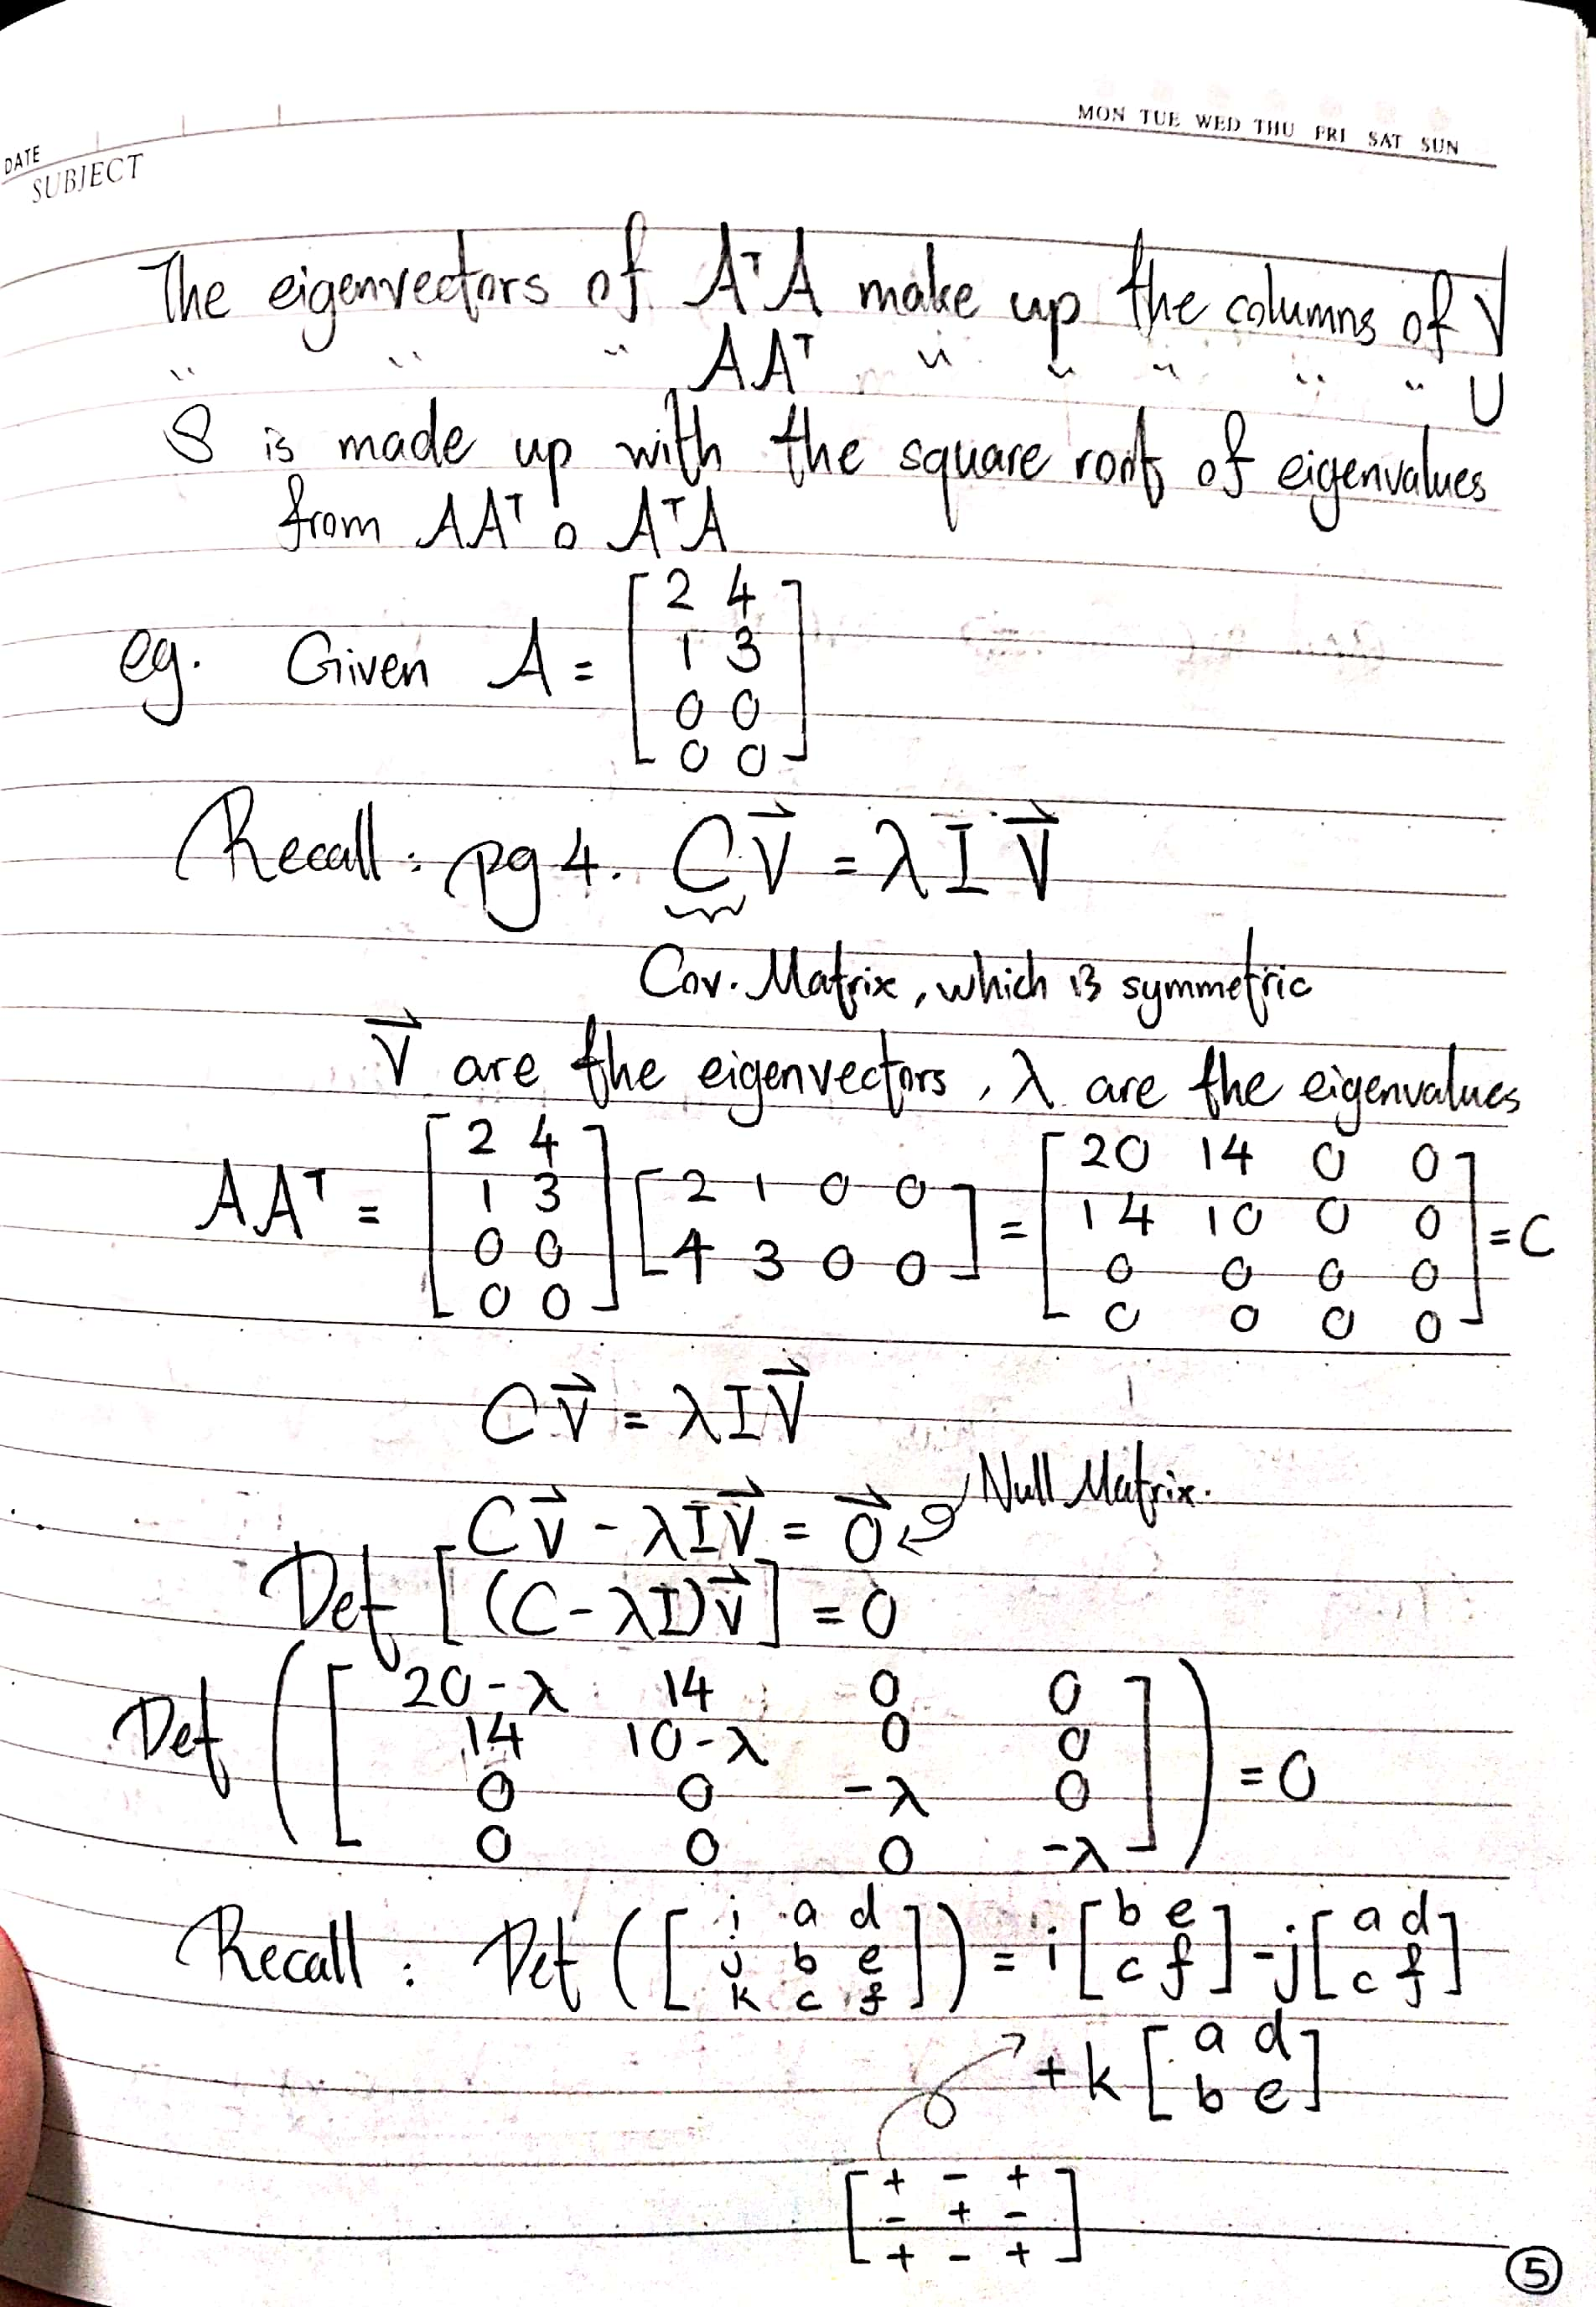 MON TUE WED THU FRI SAT SUN
DATE
SUBJECT
The eigenvectors of AᵀA make up the columns of V
" " " AAᵀ " " " " " U
S is made up with the square root of eigenvalues
from AAᵀ o AᵀA
eg. Given A = [2 4
1 3
0 0
0 0]
Recall : pg 4. C V⃗ = λ I V⃗
Cov. Matrix, which is symmetric
V⃗ are the eigenvectors, λ are the eigenvalues
AAᵀ = [2 4; 1 3; 0 0; 0 0] [2 1 0 0; 4 3 0 0] = [20 14 0 0; 14 10 0 0; 0 0 0 0; 0 0 0 0] = C
C V⃗ = λ I V⃗
C V⃗ - λ I V⃗ = 0⃗ Null Matrix.
Det [(C - λI) V⃗] = 0
Det ([20-λ 14 0 0
14 10-λ 0 0
0 0 -λ 0
0 0 0 -λ]) = 0
Recall : Det ([i a d; j b e; k c f]) = i [b e; c f] - j [a d; c f]
+ k [a d; b e]
[+ - +
- + -
+ - +]
5